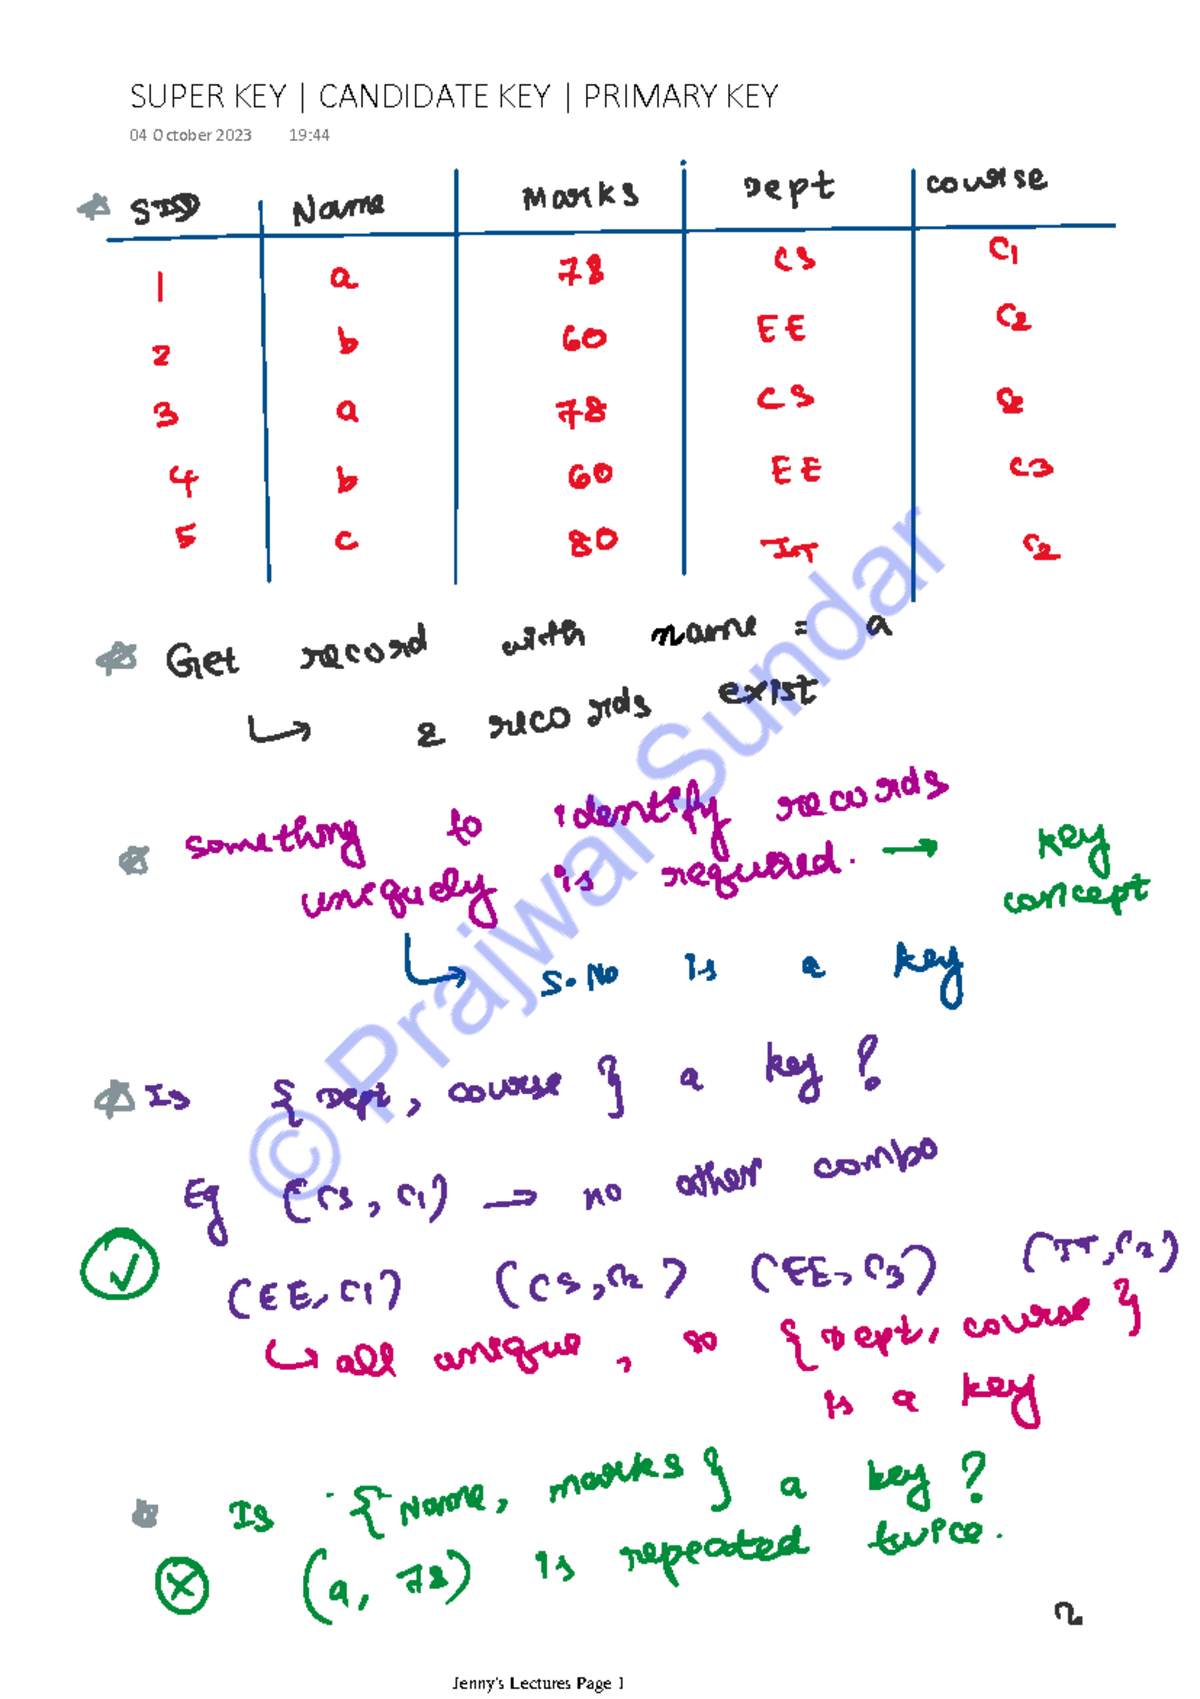 SUPER KEY | CANDIDATE KEY | PRIMARY KEY
04 October 2023 19:44
SID Name Marks Dept course
1 a 78 CS C1
2 b 60 EE C2
3 a 78 CS C2
4 b 60 EE C3
5 c 80 IT C2
Get record with name = a
↳ 2 records exist
something to identify records
uniquely is required. → key
concept
↳ S.No is a key
Is {Dept, course} a key?
Eg (CS, C1) → no other combo
(EE, C1) (CS, C2) (EE, C3) (IT, C2)
↳ all unique, so {Dept, course}
is a key
Is {Name, marks} a key?
(a, 78) is repeated twice.
© Prajwal Sundar
Jenny's Lectures Page 1